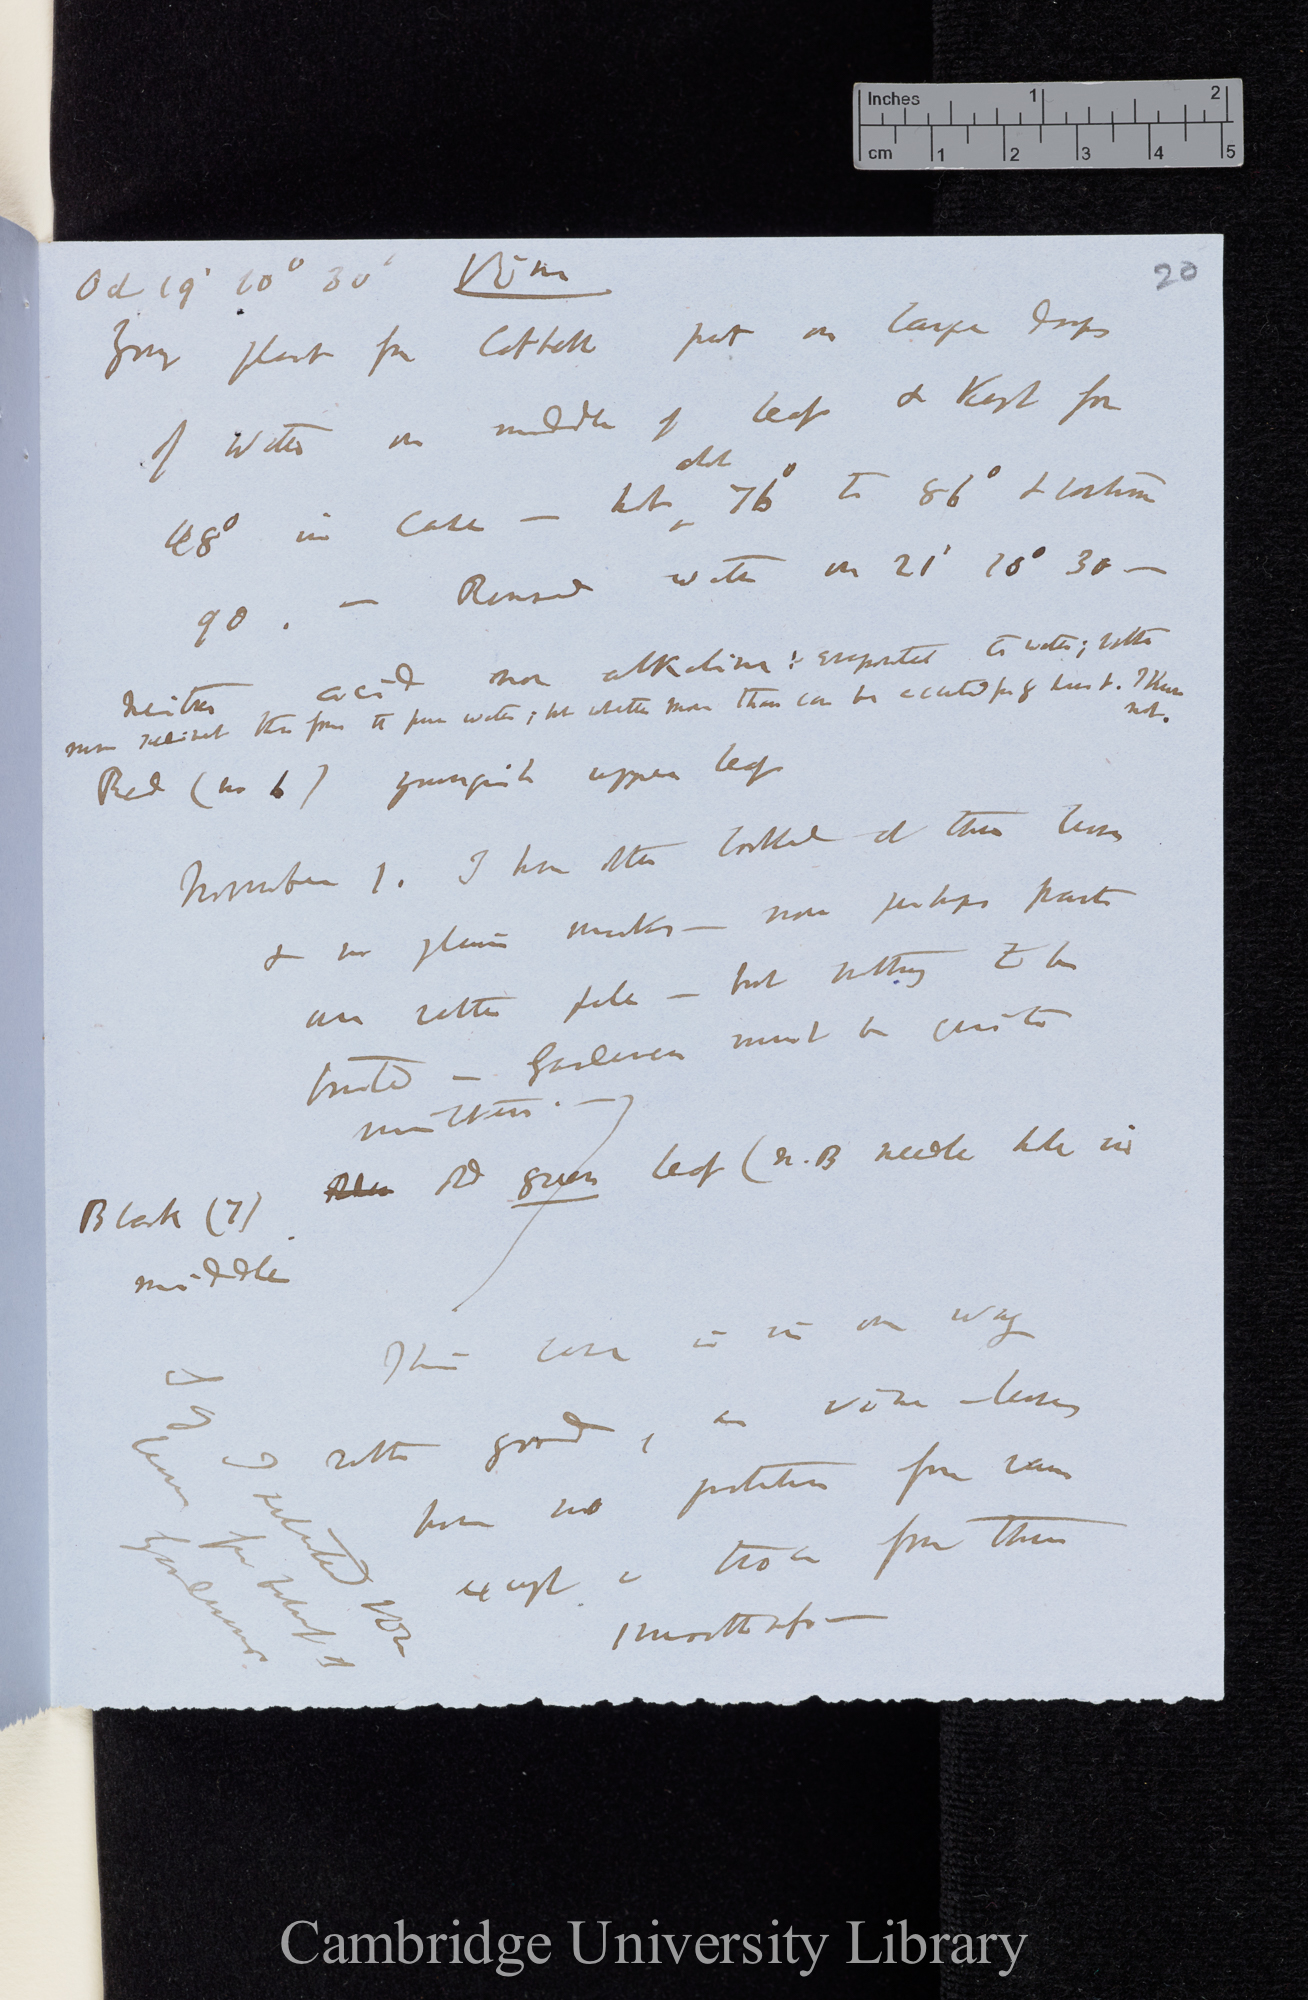 Inches 1 2
cm 1 2 3 4 5
20
Oct 19' 10° 30' Vine
plant for Cattell put on large drops
of water on middle of leaf & kept for
48° in Case — hot about 76° to 86° &
90. — Removed water on 21' 10° 30 —
Neither acid nor alkaline: evaporated to water; rather
more residue than from the pure water; but whether more than can be accounted for by dust. I know
not.
Red (no 6) youngish upper leaf
November 1. I have often looked at these leaves
& no plain marks — now perhaps parts
are rather pale — but nothing to be
trusted — Gardeners must be quite
mistaken. —
Black (7) old green leaf (N.B needle hole in
middle
This case is in one way
rather good, as vine-leaves
have no protection from rain
except a trace from their
smoothness —
I selected Vine
leaves for belief of
Gardeners.
Cambridge University Library